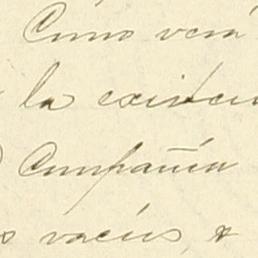 Como verá
la existen
Compañía
s vacíos, a